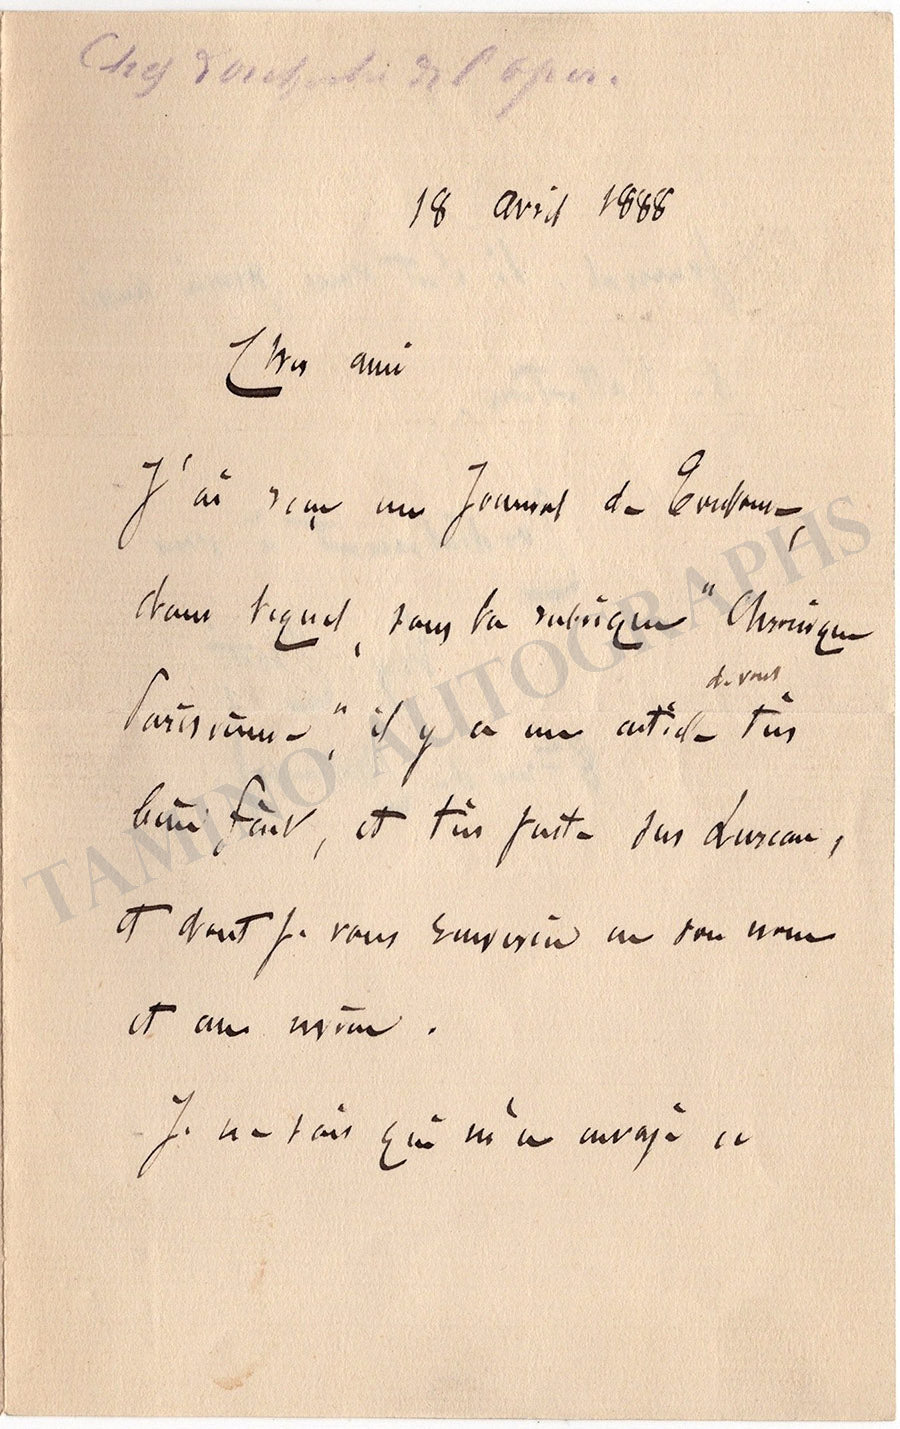 Chef d'orchestre de l'opéra.
18 avril 1888
Cher ami
J'ai reçu un Journal de Toulouse,
dans lequel, sous la rubrique "Chronique
de vous
Parisienne", il y a un article très
bien fait, et très juste sur Lureau,
et dont je vous remercie en son nom
et au mien.
Je ne sais qui m'a envoyé ce
TAMINO AUTOGRAPHS